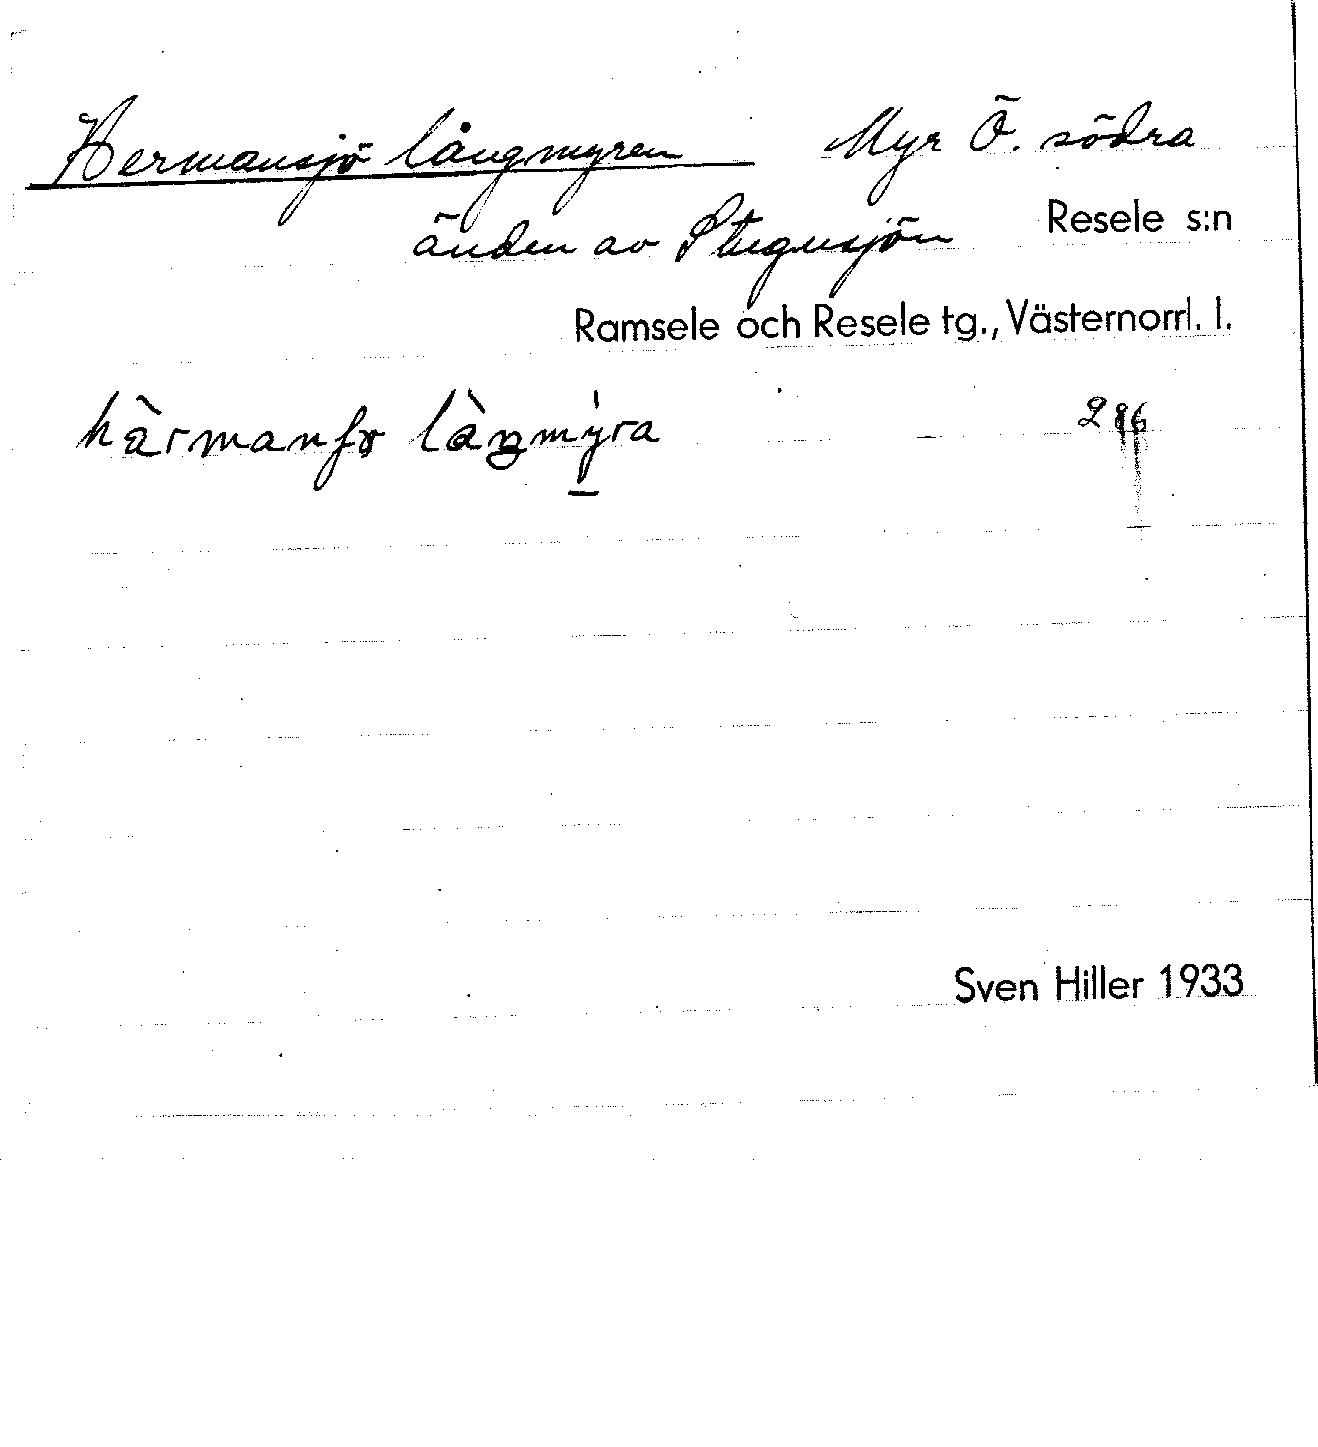 Hermansjö långmyren Myr Ö. södra
änden av Stugusjön Resele s:n
Ramsele och Resele tg., Västernorrl. l.
Sven Hiller 1933